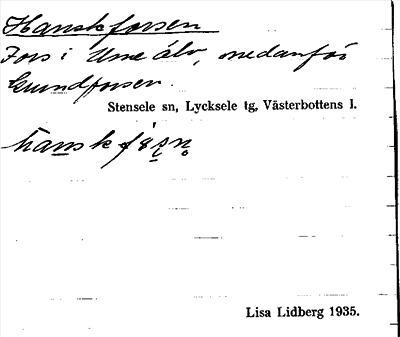 Hanskforsen
Fors i Ume älv, nedanför
Grundforsen.
Stensele sn, Lycksele tg, Västerbottens l.
Lisa Lidberg 1935.